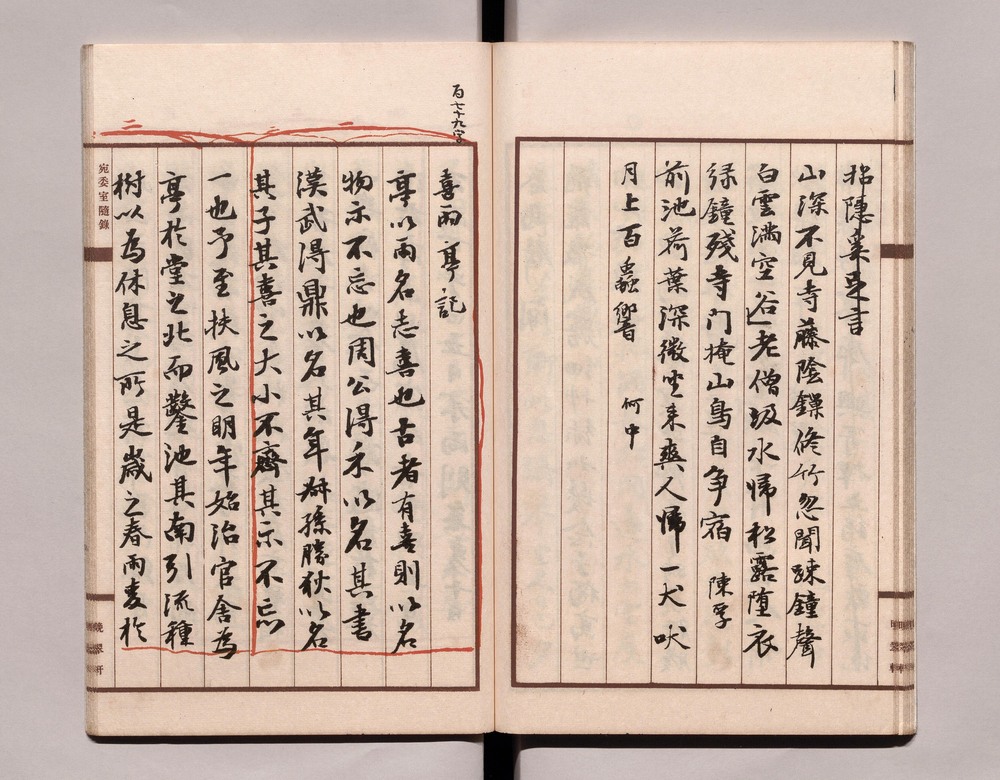 山深不見寺藤陰鎖修竹忽聞疎鐘聲
白雲滿空谷老僧汲水歸松露墮衣
緑鐘殘寺門掩山鳥自争宿 陳孚
前池荷葉深微坐来爽人歸一犬吠
月上百蟲響 何中
百七十九字
喜雨亭記
亭以雨名志喜也古者有喜則以名
物示不忘也周公得禾以名其書
漢武得鼎以名其年叔孫勝狄以名
其子其喜之大小不齊其示不忘
一也予至扶風之明年始治官舎為
亭於堂之北而鑿池其南引流種
樹以為休息之所是歳之春雨麦於
宛委室隨録